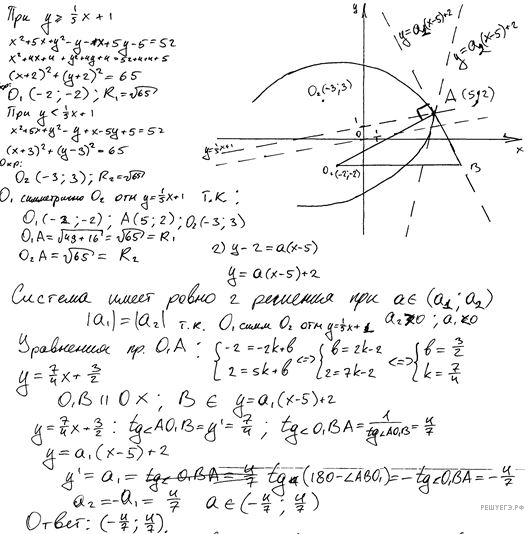 При y ≥ 1/5 x + 1
x²+5x+y²-y-x+5y-5=52
x²+4x+4+y²+4y+4=52+4+4+5
(x+2)²+(y+2)²=65
O₁(-2;-2); R₁=√65
При y < 1/5 x + 1
x²+5x+y²-y+x-5y+5=52
(x+3)²+(y-3)²=65
Окр:
O₂(-3;3); R₂=√65
O₁ симметрично O₂ отн y=1/5x+1 т.к:
O₁(-2;-2); A(5;2); O₂(-3;3)
O₁A=√49+16=√65=R₁
O₂A=√65=R₂
y
y=a₁(x-5)+2
y=a₂(x-5)+2
A(5;2)
O₂(-3;3)
1
0
1
x
y=1/5x+1
O₁(-2;-2)
B
2) y-2=a(x-5)
y=a(x-5)+2
Система имеет ровно 2 решения при a∈(a₁;a₂)
|a₁|=|a₂| т.к. O₁ симм O₂ отн y=1/5x+1 a₂>0; a₁<0
Уравнения пр. O₁A: {-2=-2k+b 2=5k+b <=> {b=2k-2 2=7k-2 <=> {b=3/2 k=7/4
y=7/4x+3/2
O₁B || OX; B ∈ y=a₁(x-5)+2
y=7/4x+3/2: tg<AO₁B=y'=7/4; tg<O₁BA=1/tg<AO₁B=4/7
y=a₁(x-5)+2
y'=a₁=tg<O₁BA=4/7 tg(180-∠ABO₁)=-tg<O₁BA=-4/7
a₂=-a₁=4/7 a∈(-4/7;4/7)
Ответ: (-4/7;4/7).
РЕШУЕГЭ.РФ